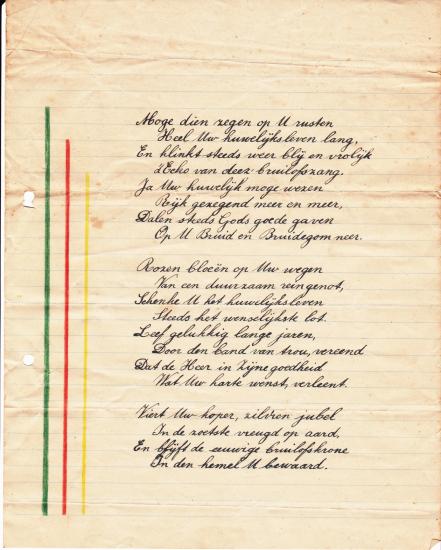 Moge dien zegen op U rusten
Heel Uw huwelijksleven lang,
En klinkt steeds weer blij en vrolijk
d'Echo van deez bruilofszang.
Ja Uw huwelijk moge wezen
Rijk gezegend meer en meer,
Dalen steeds Gods goede gaven
Op U Bruid en Bruidegom neer.
Rozen bloeën op Uw wegen
Van een duurzaam reingenot,
Schenke U het huwelijksleven
Steeds het wenselijkste lot.
Leef gelukkig lange jaren,
Door den band van trou, vereend
Dat de Heer in Zijne goedheid
Wat Uw harte wenst, verleent.
Viert Uw koper, zilvren jubel
In de zoetste vreugd op aard,
En blijft de euwige bruilofskrone
In den hemel U bewaard.